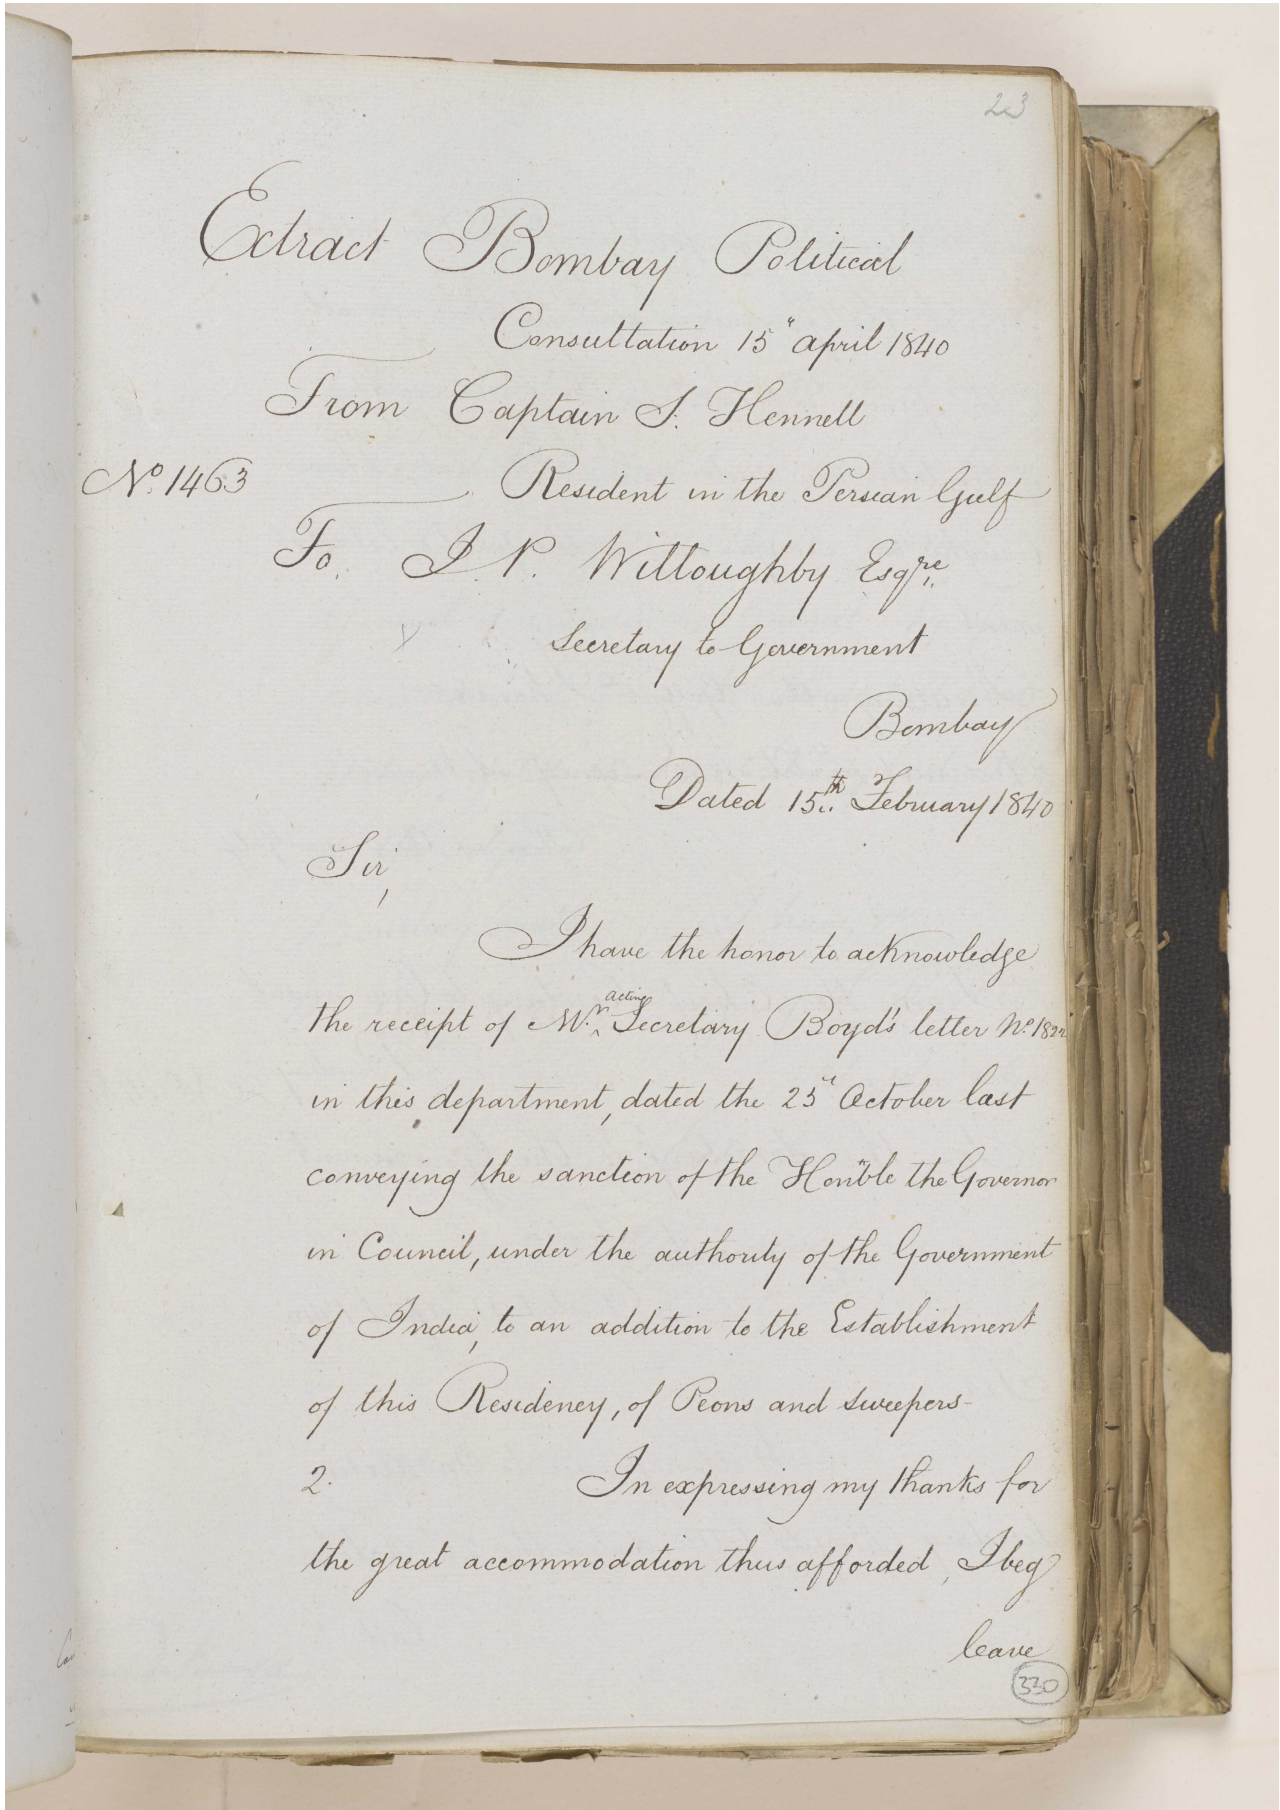 23
Extract Bombay Political
Consultation 15" April 1840
From Captain S. Hennell
No. 1463
Resident in the Persian Gulf
To. J. P. Willoughby Esqre.
Secretary to Government
Bombay
Dated 15th. February 1840
Sir,
I have the honor to acknowledge
the receipt of Mr. Acting Secretary Boyd's letter No. 1822
in this department, dated the 25" October last
conveying the sanction of the Hon'ble the Governor
in Council, under the authority of the Government
of India, to an addition to the Establishment
of this Residency, of Peons and sweepers-
2. In expressing my thanks for
the great accommodation thus afforded, I beg
leave
330